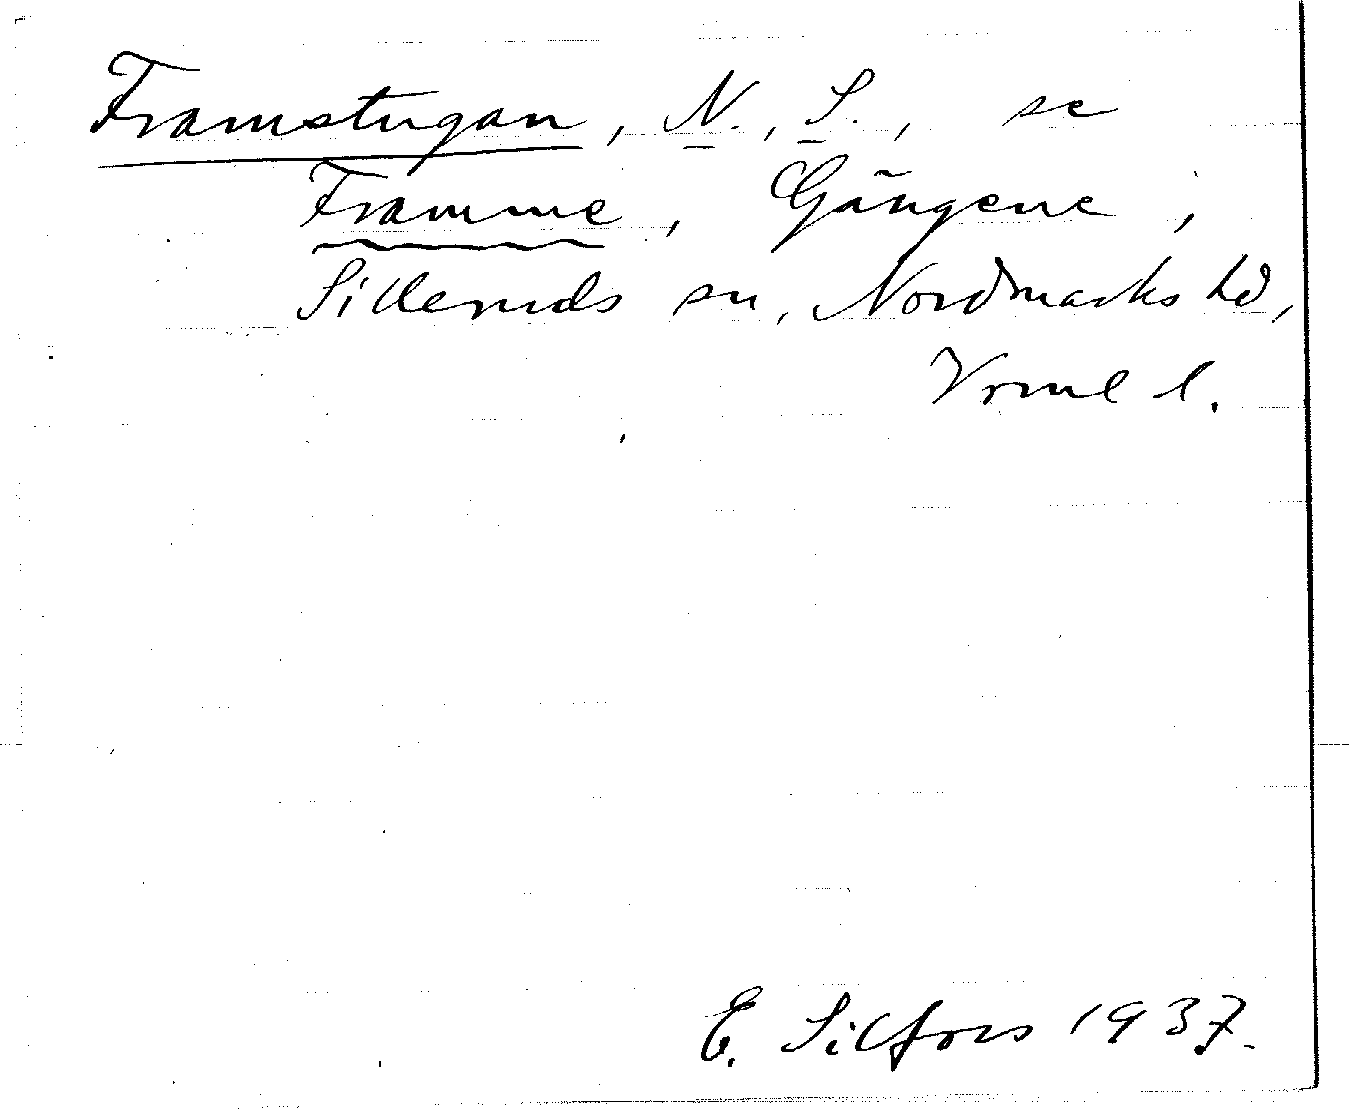 Framstugan, N., S., se
Framme, Gängene,
Silleruds sn, Nordmarks hd,
Vrml l.
E. Silfors 1937.